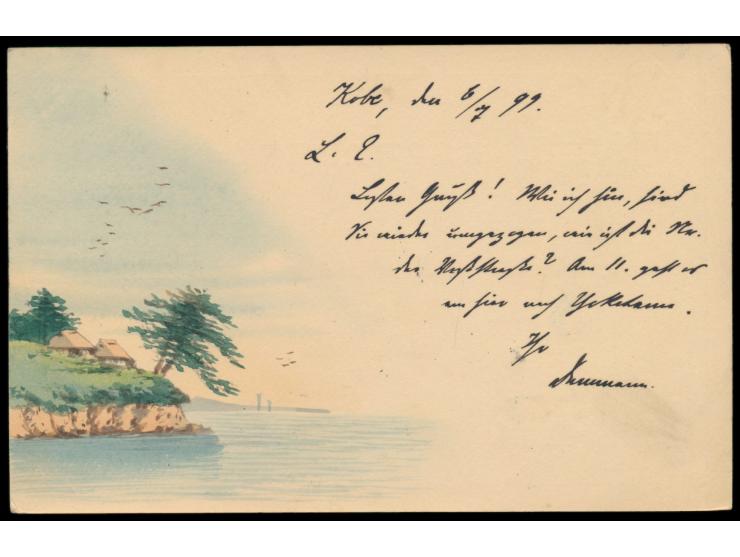 Kobe, den 6/7 99.
L. L.
Besten Gruß! Wie ich höre, sind
Sie wieder umgezogen, wie ist die Nr.
der Poststraße? Am 11. geht es
von hier nach Yokohama.
Ihr